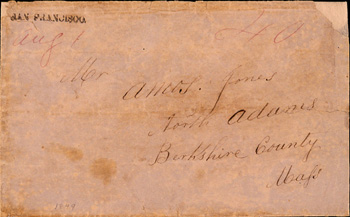 SAN FRANCISCO.
Aug 1 40
Mr
Amos. Jones
North Adams
Berkshire County
Mass